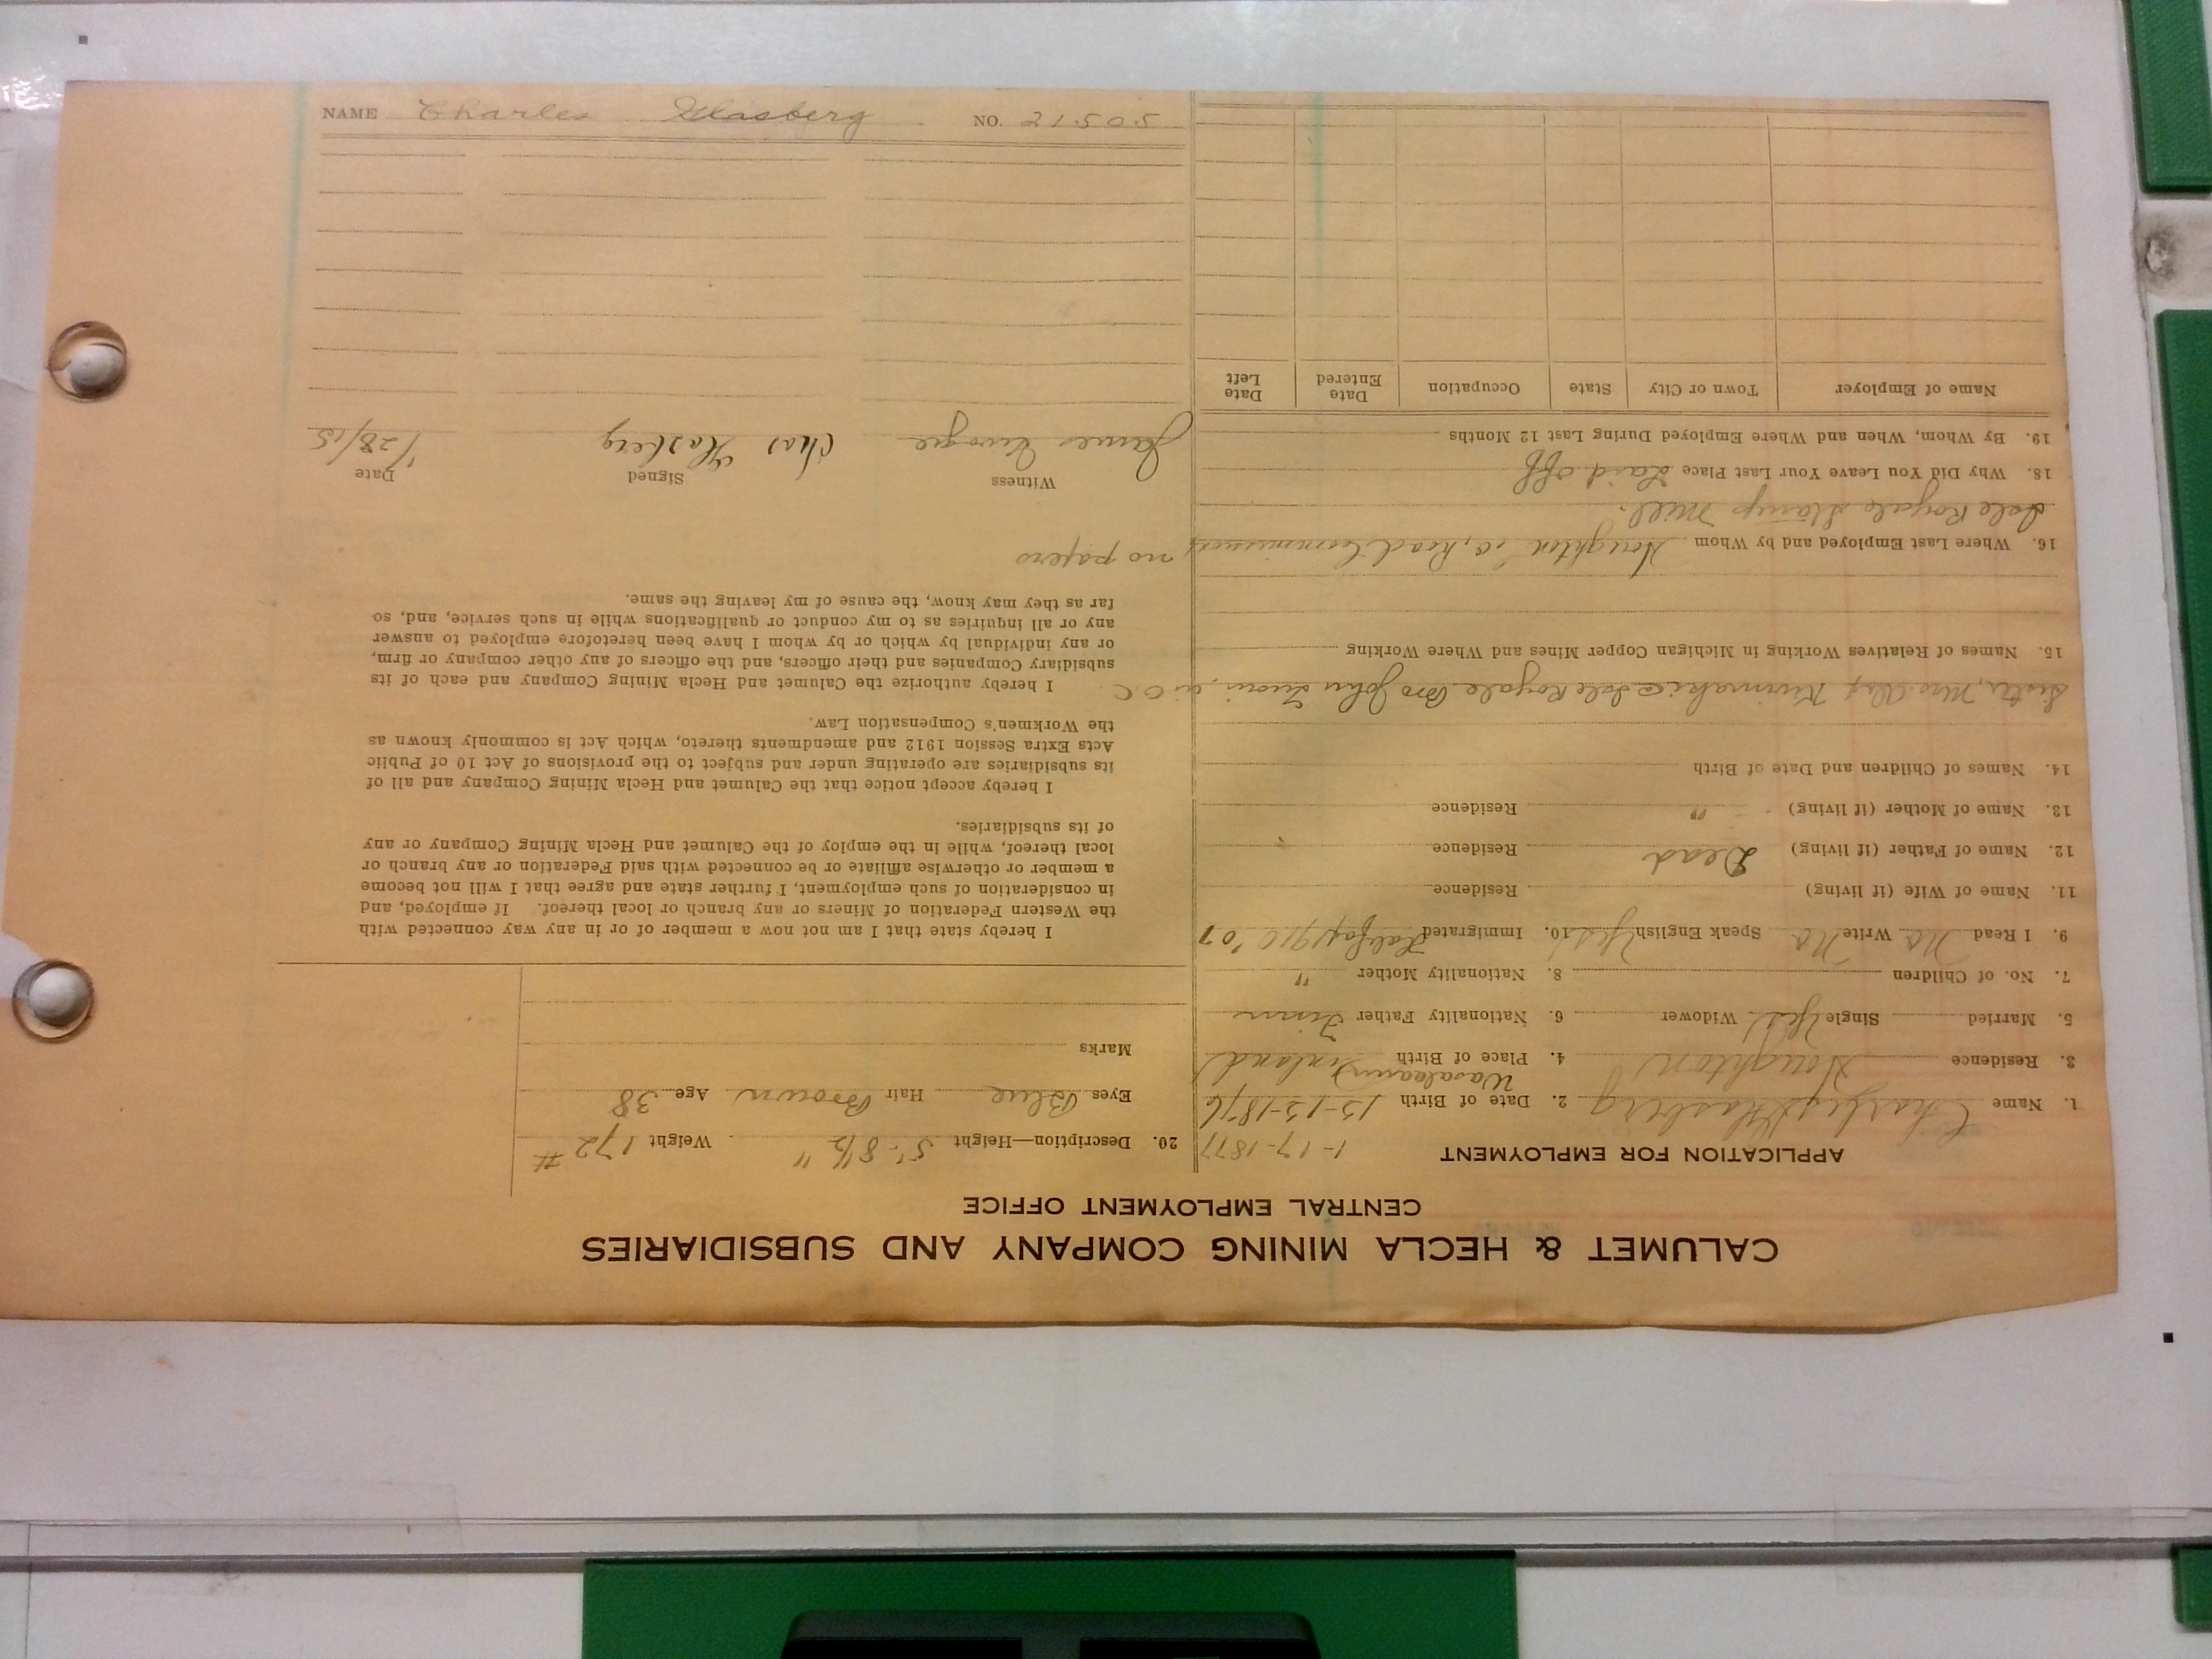 CALUMET & HECLA MINING COMPANY AND SUBSIDIARIES
CENTRAL EMPLOYMENT OFFICE
APPLICATION FOR EMPLOYMENT
1-17-1877
1. Name Charles Glasberg 2. Date of Birth 12-13-1876
3. Residence Houghton 4. Place of Birth Finland
5. Married Single Yes Widower 6. Nationality Father Finn
7. No. of Children 8. Nationality Mother "
9. I Read No Write No Speak English Yes 10. Immigrated Halifax 1910 '07
11. Name of Wife (if living) Residence
12. Name of Father (if living) Dead Residence
13. Name of Mother (if living) " Residence
14. Names of Children and Date of Birth
Sister, Mrs. Isle Royale Bro John in O.C.
15. Names of Relatives Working in Michigan Copper Mines and Where Working
16. Where Last Employed and by Whom Houghton Co, Road
Isle Royale Stamp Mill.
18. Why Did You Leave Your Last Place Laid off
19. By Whom, When and Where Employed During Last 12 Months
Name of Employer Town or City State Occupation Date Entered Date Left
20. Description—Height 5'-8½" Weight 172 #
Eyes Blue Hair Brown Age 38
Marks
I hereby state that I am not now a member of or in any way connected with
the Western Federation of Miners or any branch or local thereof. If employed, and
in consideration of such employment, I further state and agree that I will not become
a member or otherwise affiliate or be connected with said Federation or any branch or
local thereof, while in the employ of the Calumet and Hecla Mining Company or any
of its subsidiaries.
I hereby accept notice that the Calumet and Hecla Mining Company and all of
its subsidiaries are operating under and subject to the provisions of Act 10 of Public
Acts Extra Session 1912 and amendments thereto, which Act is commonly known as
the Workmen's Compensation Law.
I hereby authorize the Calumet and Hecla Mining Company and each of its
subsidiary Companies and their officers, and the officers of any other company or firm,
or any individual by which or by whom I have been heretofore employed to answer
any or all inquiries as to my conduct or qualifications while in such service, and, so
far as they may know, the cause of my leaving the same.
no papers
Witness Signed Date
James Chas Glasberg 1/28/15
NAME Charles Glasberg NO. 21505